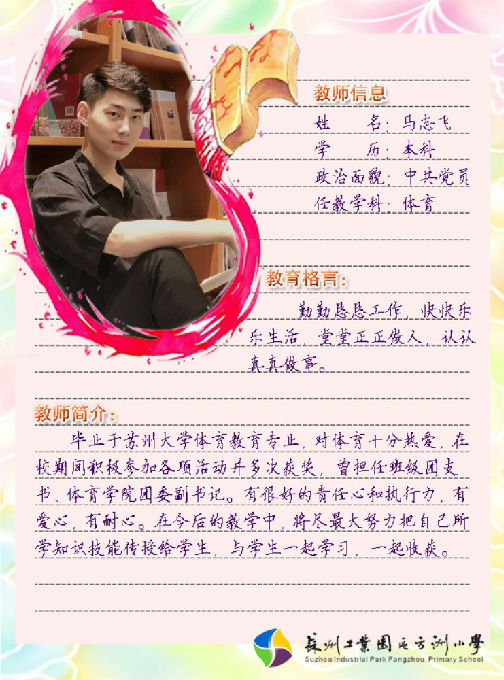 教师信息
姓 名：马志飞
学 历：本科
政治面貌：中共党员
任教学科：体育
教育格言：
勤勤恳恳工作，快快乐
乐生活，堂堂正正做人，认认
真真做事。
教师简介：
毕业于苏州大学体育教育专业，对体育十分热爱，在
校期间积极参加各项活动并多次获奖，曾担任班级团支
书、体育学院团委副书记。有很好的责任心和执行力，有
爱心，有耐心。在今后的教学中，将尽最大努力把自己所
学知识技能传授给学生，与学生一起学习，一起收获。
蘇州工業園区方洲小學
Suzhou Industrial Park Fangzhou Primary School